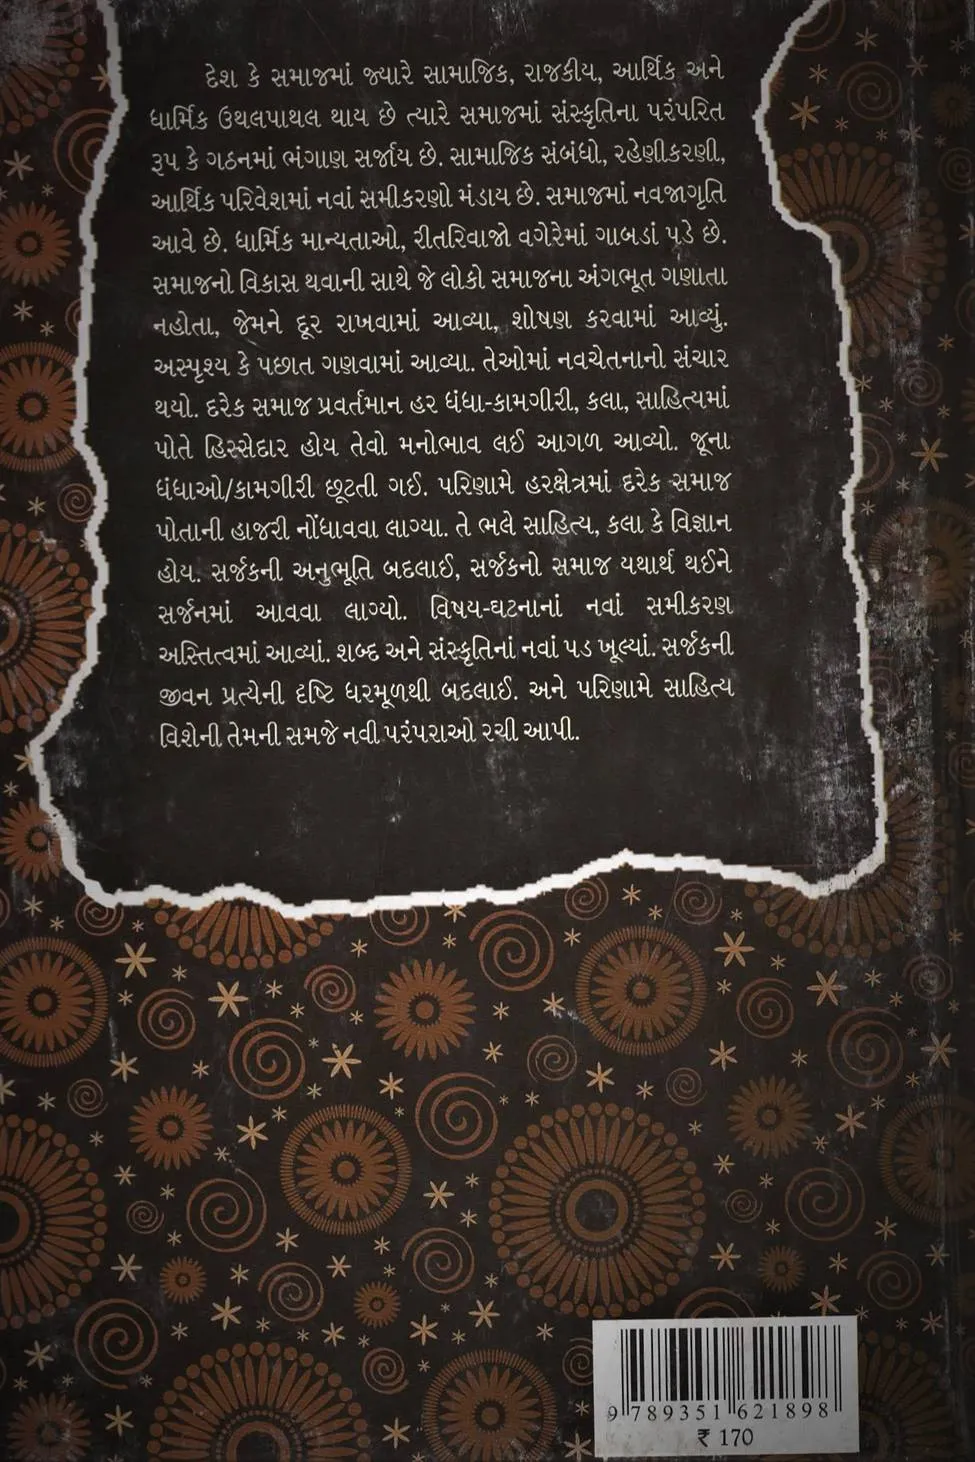 દેશ કે સમાજમાં જ્યારે સામાજિક, રાજકીય, આર્થિક અને
ધાર્મિક ઉથલપાથલ થાય છે ત્યારે સમાજમાં સંસ્કૃતિના પરંપરિત
રૂપ કે ગઠનમાં ભંગાણ સર્જાય છે. સામાજિક સંબંધો, રહેણીકરણી,
આર્થિક પરિવેશમાં નવાં સમીકરણો મંડાય છે. સમાજમાં નવજાગૃતિ
આવે છે. ધાર્મિક માન્યતાઓ, રીતરિવાજો વગેરેમાં ગાબડાં પડે છે.
સમાજનો વિકાસ થવાની સાથે જે લોકો સમાજના અંગભૂત ગણાતા
નહોતા, જેમને દૂર રાખવામાં આવ્યા, શોષણ કરવામાં આવ્યું.
અસ્પૃશ્ય કે પછાત ગણવામાં આવ્યા. તેઓમાં નવચેતનાનો સંચાર
થયો. દરેક સમાજ પ્રવર્તમાન હર ધંધા-કામગીરી, કલા, સાહિત્યમાં
પોતે હિસ્સેદાર હોય તેવો મનોભાવ લઈ આગળ આવ્યો. જૂના
ધંધાઓ/કામગીરી છૂટતી ગઈ. પરિણામે હરક્ષેત્રમાં દરેક સમાજ
પોતાની હાજરી નોંધાવવા લાગ્યા. તે ભલે સાહિત્ય, કલા કે વિજ્ઞાન
હોય. સર્જકની અનુભૂતિ બદલાઈ, સર્જકનો સમાજ યથાર્થ થઈને
સર્જનમાં આવવા લાગ્યો. વિષય-ઘટનાનાં નવાં સમીકરણ
અસ્તિત્વમાં આવ્યાં. શબ્દ અને સંસ્કૃતિનાં નવાં પડ ખૂલ્યાં. સર્જકની
જીવન પ્રત્યેની દૃષ્ટિ ધરમૂળથી બદલાઈ. અને પરિણામે સાહિત્ય
વિશેની તેમની સમજે નવી પરંપરાઓ રચી આપી.
9 789351 621898
₹ 170